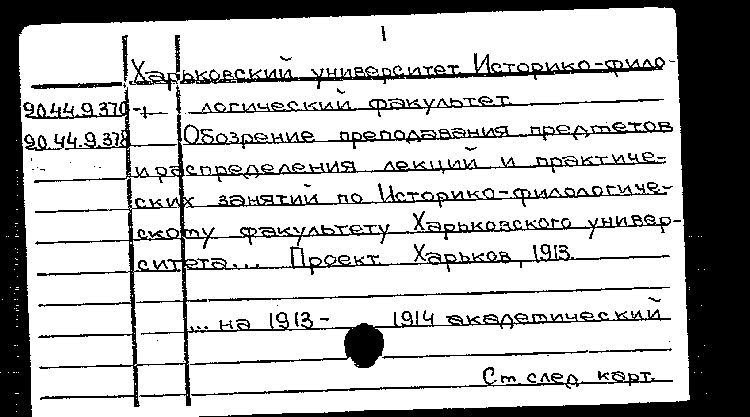 1
Харьковский университет. Историко-фило-
90.44.9.370 -1 логический факультет.
90.44.9.378 Обозрение преподавания предметов
и распределения лекций и практиче-
ских занятий по Историко-филологиче-
скому факультету Харьковского универ-
ситета... Проект. Харьков, 1913.
... на 1913- 1914 академический
См. след. карт.